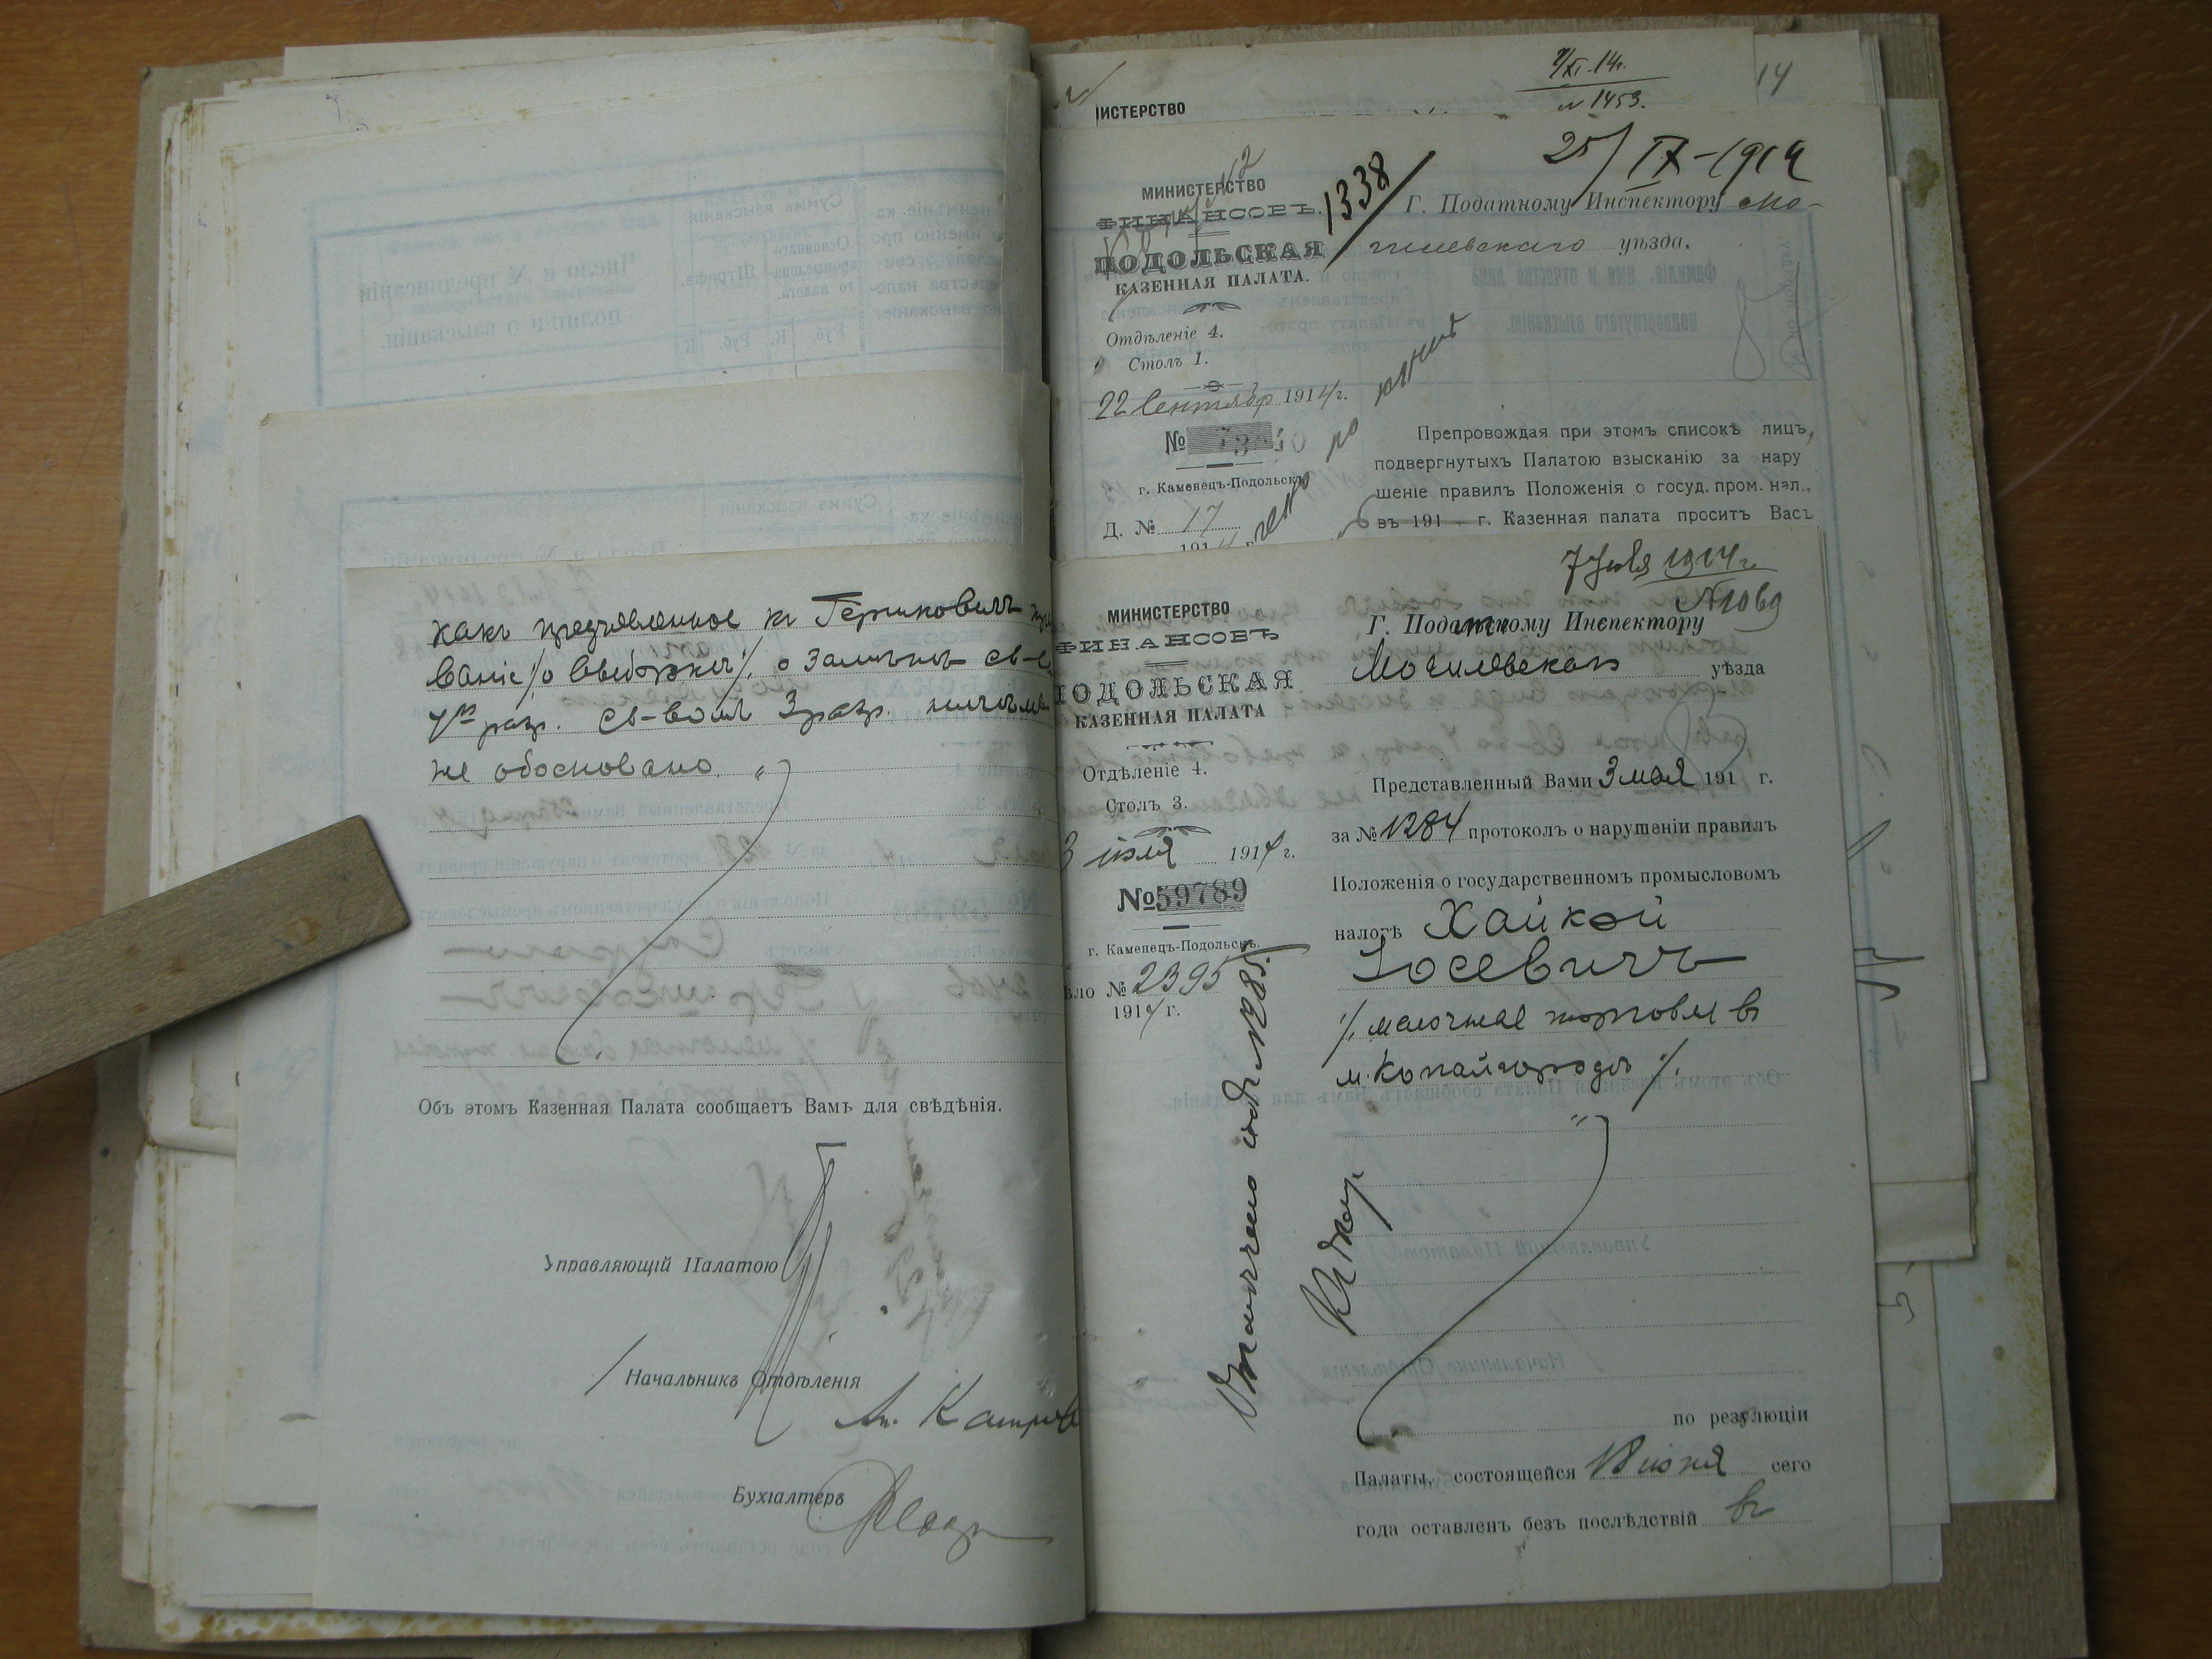 какъ предъявленное къ Гершковичъ
ваніе /о выборкѣ/ о замѣнѣ св-
4го разр. св-вомъ 3 разр. ничѣмъ
не обосновано.
Объ этомъ Казенная Палата сообщаетъ Вамъ для свѣдѣнія.
Управляющій Палатою
Начальникъ Отдѣленія
Бухгалтеръ
ИСТЕРСТВО
7/XI-14г.
№ 1453.
14
25/IX-1914
1338
МИНИСТЕРСТВО
ФИНАНСОВЪ.
ПОДОЛЬСКАЯ
КАЗЕННАЯ ПАЛАТА.
Отдѣленіе 4.
Столъ 1.
22 Сентябр 1914 г.
№
г. Каменецъ-Подольскъ
Д. № 17
1914 г.
Г. Податному Инспектору Мо-
гилевскаго уѣзда.
Препровождая при этомъ списокъ лицъ,
подвергнутыхъ Палатою взысканію за нару
шеніе правилъ Положенія о госуд. пром. нал.,
въ 191 г. Казенная палата проситъ Васъ
7 Іюля 1914 г.
№ 1069
МИНИСТЕРСТВО
ФИНАНСОВЪ
ПОДОЛЬСКАЯ
КАЗЕННАЯ ПАЛАТА
Отдѣленіе 4.
Столъ 3.
3 іюля 1914 г.
№ 59789
г. Каменецъ-Подольскъ.
ѣло № 2395
1914 г.
Г. Податному Инспектору
Могилевскаго уѣзда
Представленный Вами 3 мая 191 г.
за № 1284 протоколъ о нарушеніи правилъ
Положенія о государственномъ промысловомъ
налогѣ Хайкой
Іосевичъ
/. мелочная торговля въ
м. Копайгородѣ /.
Отмѣчено
по резулюціи
Палаты, состоящейся 18 іюня сего
года оставленъ безъ послѣдствій въ